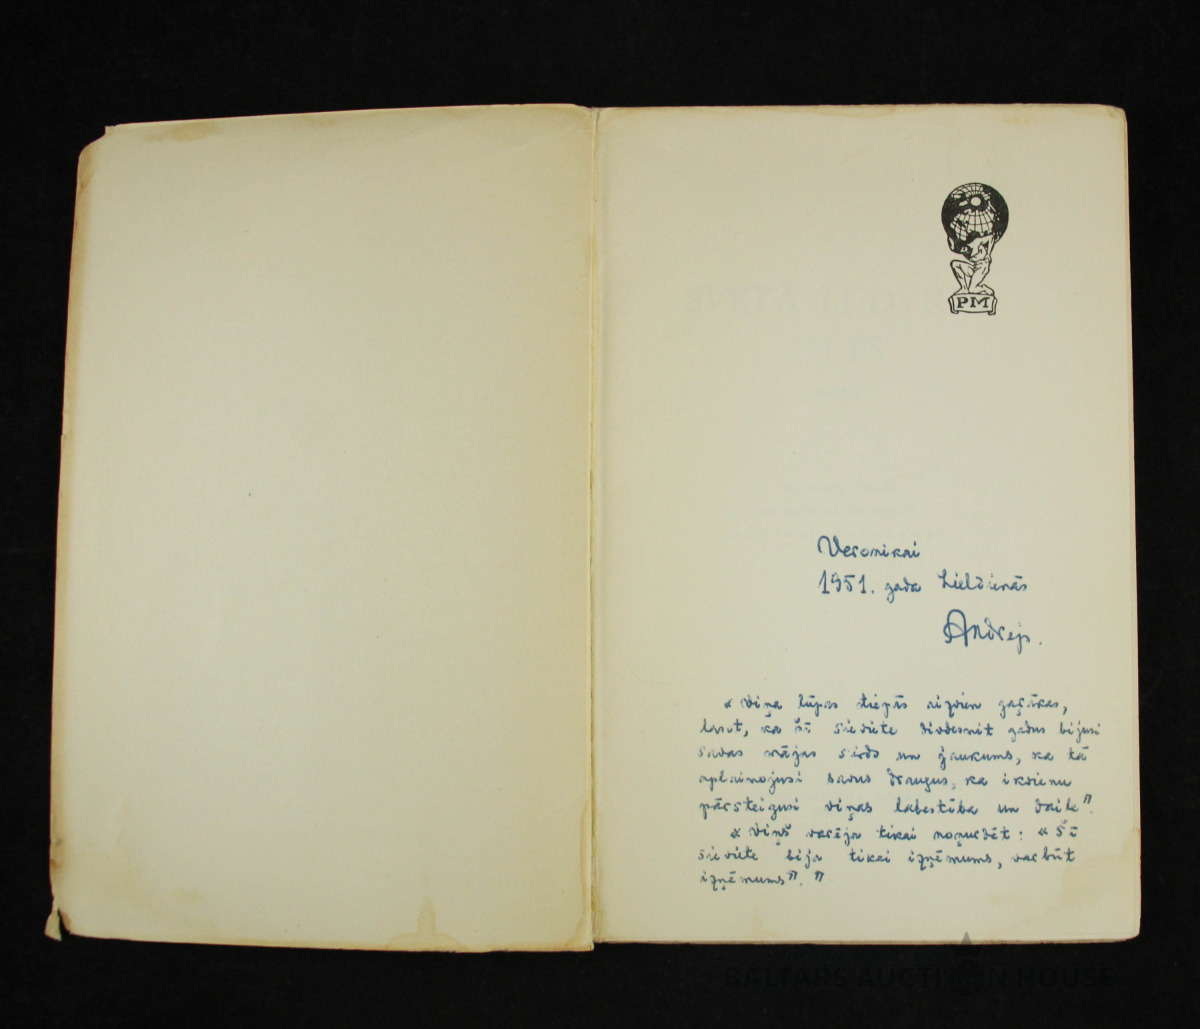 PM
Veronikai
1951. gada Lieldienās
Andrejs.
« Viņa lūpas stiepās aizvien gaŗākas,
lasot, ka šī sieviete divdesmit gadus bijusi
savas mājas sirds un jaukums, ka tā
aplaimojusi savus draugus, ka ikvienu
pārsteigusi viņas labestība un daile".
« Viņš varēja tikai noņurdēt: « Šī
sieviete bija tikai izņēmums, varbūt
izņēmums". "
BALTARS AUCTION HOUSE